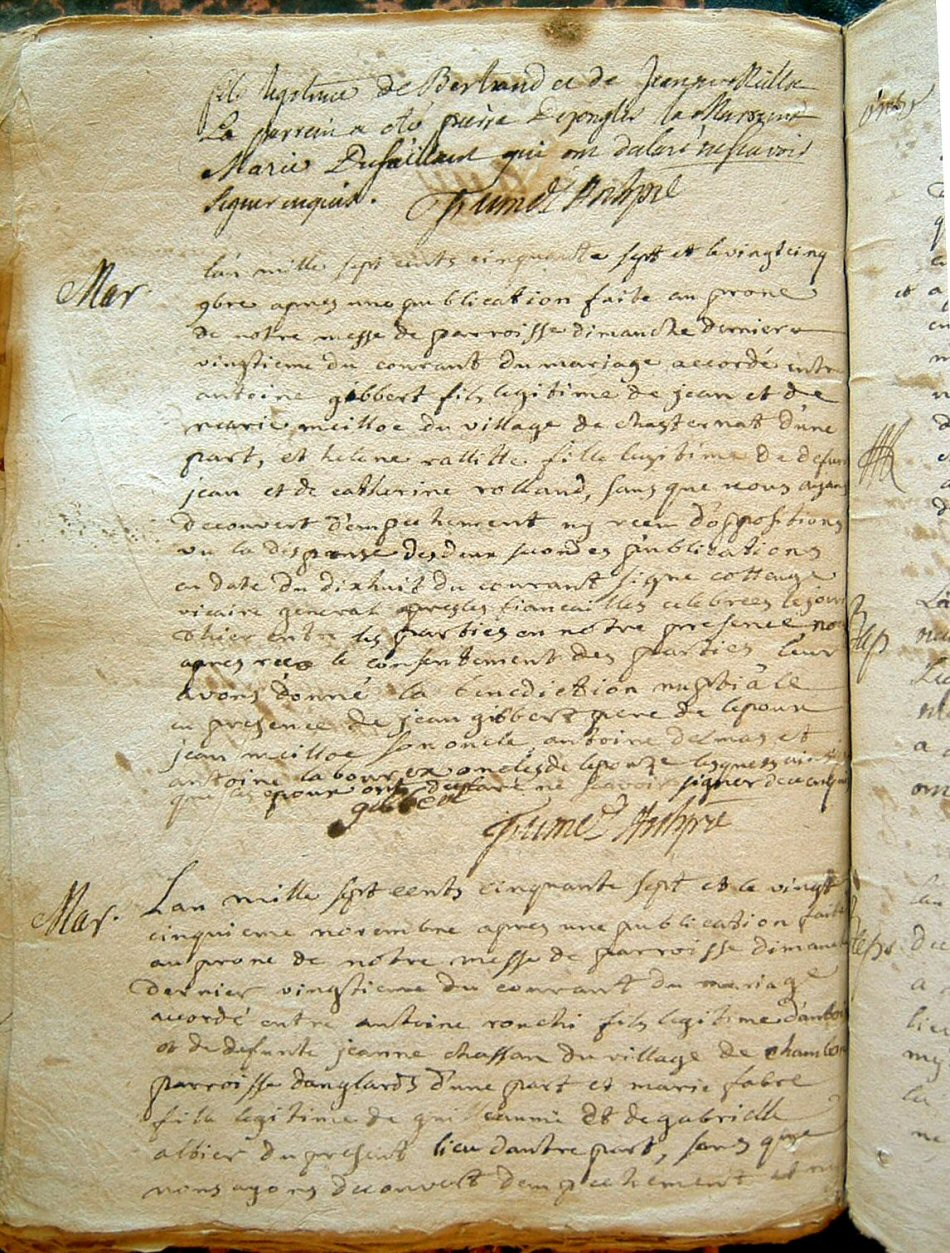 fils legitime de Bertrand et de Jeanne
Le parrein a oté pierre Deponglis la Marreine
Marie Dufaillant qui ont dalaré ne scavoir
signer enquis.
Mar.
lan mille sept cents cinquante sept et le vingt cinq
9bre apres une publication faite au prone
de notre messe de parroisse dimanche dernier
vingtieme du courant du mariage accordé entre
antoine gibbert fils legitime de jean et de
marie meilloe du village de chasternat d'une
part, et helene rallitte fille legitime de defunt
jean et de catherine rolland, sans que nous ayans
decouvert d'empechement ny receu d'oppositions
vu la dispense des deux secondes publications
en date du dixhuit du courant signe cottenge
vicaire general apres les fiancailles celebrees le jour
d'hier entre les parties en notre presence nous
apres recu le consentement des parties leur
avons donné la benediction nuptiale
en presence de jean gibbert pere de lepoux
jean meilloe son oncle antoine delmas et
antoine labourex oncles de lepouze lesquels
que les epoux ont declaré ne scavoir signer de ce enquis
gibbert
Mar.
Lan mille sept cents cinquante sept et le vingt
cinquieme novembre apres une publication faite
au prone de notre messe de parroisse dimanche
dernier vingtieme du courant du mariage
accordé entre antoine ronchi fils legitime d'antoine
et de defunte jeanne chassan du village de chambon
parroisse danglards d'une part et marie fabre
fille legitime de guilleaume et de gabrielle
albier du present lieu dautre part, sans que
nous ayons decouvert dempechement et ny